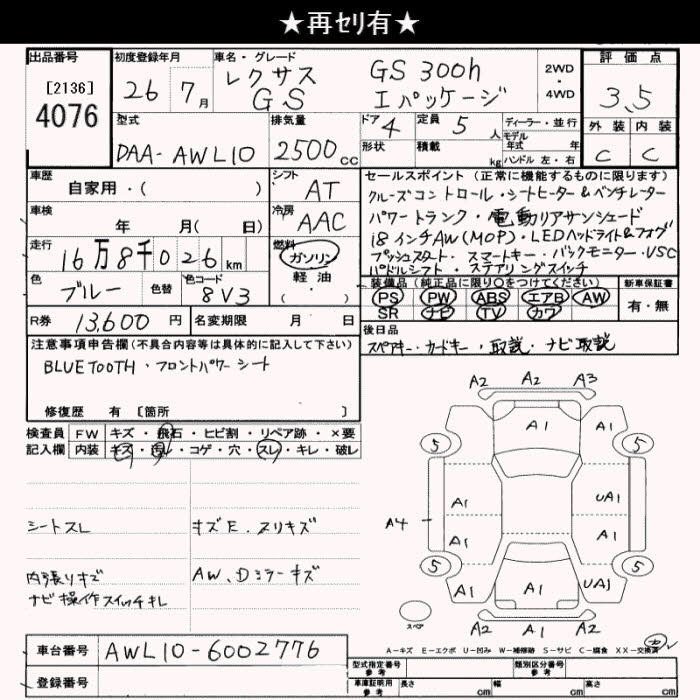 ★再セリ有★
出品番号 初度登録年月 車名・グレード 評価点
[2136] 26 7月 レクサス GS 300h 2WD・4WD
4076 GS Iパッケージ 3.5
型式 排気量 ドア 4 定員 5人 ディーラー・並行 外装 内装
DAA-AWL10 2500cc 形状 積載 kg モデル年式 年 ハンドル 左・右 C C
車歴 自家用・( ) シフト AT セールスポイント (正常に機能するものに限ります)
クルーズコントロール・シートヒーター&ベンチレーター
車検 年 月( 日) 冷房 AAC パワートランク・電動リアサンシェード
18インチAW(MOP)・LEDヘッドライト&フォグ
走行 16万8千026km 燃料 ガソリン 軽油・( ) プッシュスタート・スマートキー・バックモニター・VSC
パドルシフト・ステアリングスイッチ
色 ブルー 色替 色コード 8V3 装備品 (純正品に限り○をつけてください) 新車保証書
PS PW ABS エアB AW 有・無
SR ナビ TV カワ
R券 13,600円 名変期限 月 日 後日品
スペアキー・カードキー・取説・ナビ取説
注意事項申告欄(不具合内容等は具体的に記入して下さい)
BLUETOOTH・フロントパワーシート
修復歴 有 [箇所 ]
検査員 FW キズ・飛石・ヒビ割・リペア跡・×要
記入欄 内装 キズ・汚レ・コゲ・穴・スレ・キレ・破レ
シートスレ キズE.スリキズ
内張りキズ AW、Dミラーキズ
ナビ操作スイッチキレ
A2 A2 A3
A1
5 5
A1 UA1
A4
A1 A1
5 5
A1 A1 UA1
スペア A2 A2 A2
A-キズ E-エクボ U-凹み W-補修跡 S-サビ C-腐食 XX-交換済
車台番号 AWL10-6002776 型式指定番号 参考 類別区分番号 参考
登録番号 車庫証明用 参考 長さ cm 幅 cm 高さ cm